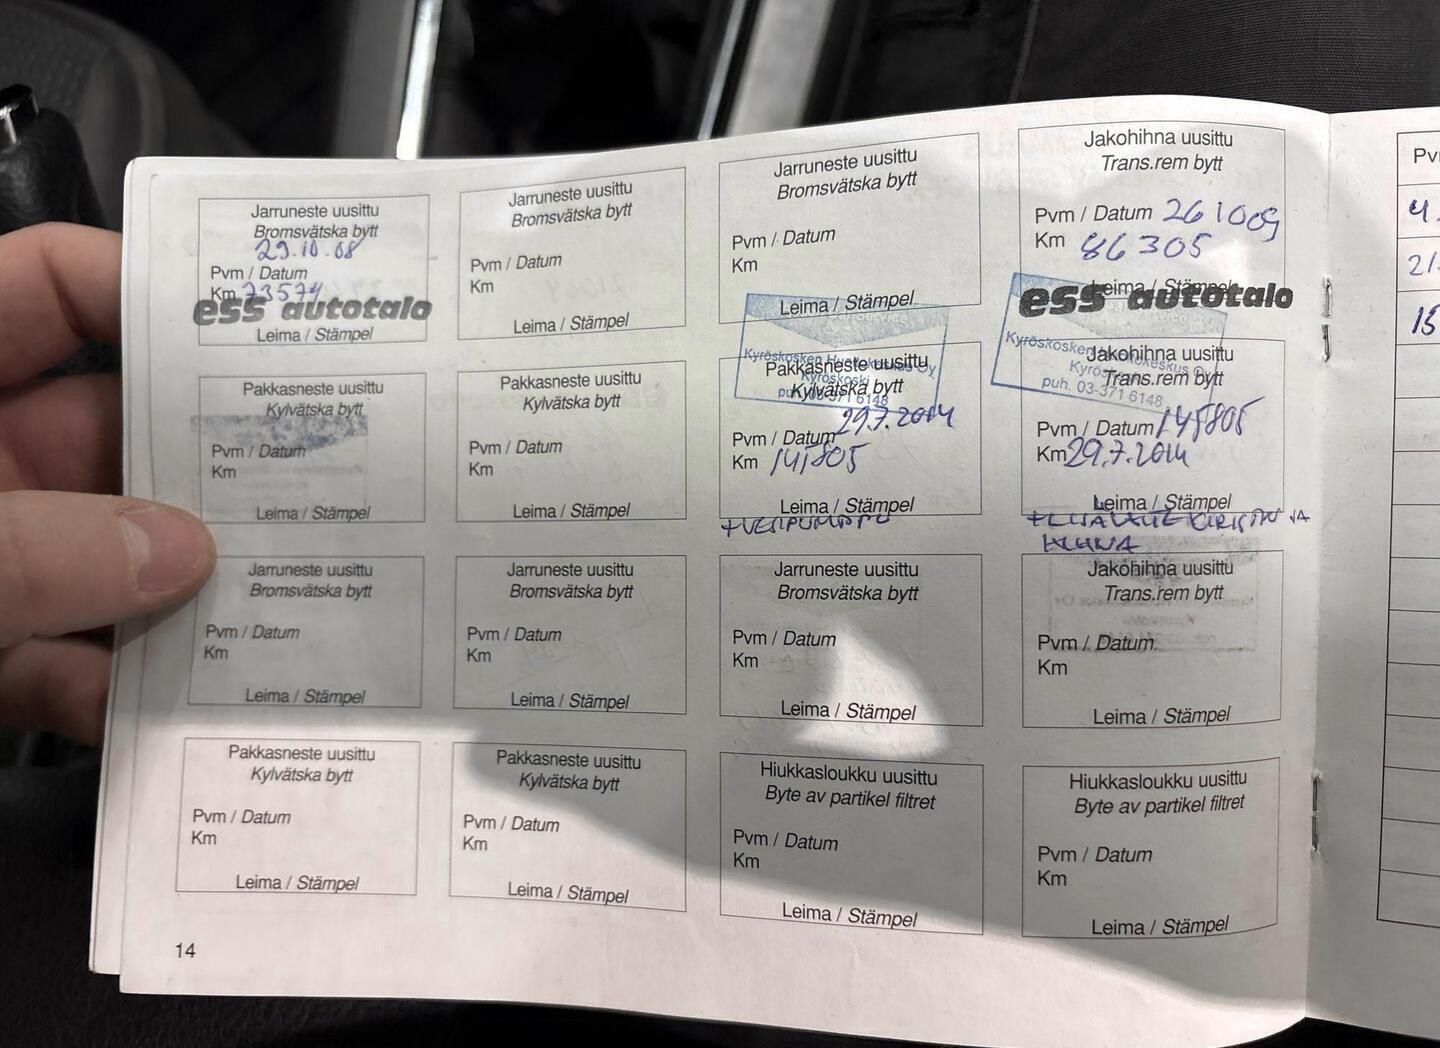 Jarruneste uusittu
Bromsvätska bytt
29.10.08
Pvm / Datum
Km 73574
ess autotalo
Leima / Stämpel
Jarruneste uusittu
Bromsvätska bytt
Pvm / Datum
Km
Leima / Stämpel
Jarruneste uusittu
Bromsvätska bytt
Pvm / Datum
Km
Leima / Stämpel
Jakohihna uusittu
Trans.rem bytt
Pvm / Datum 261009
Km 86305
Leima / Stämpel
ess autotalo
Pakkasneste uusittu
Kylvätska bytt
Pvm / Datum
Km
Leima / Stämpel
Pakkasneste uusittu
Kylvätska bytt
Pvm / Datum
Km
Leima / Stämpel
Kyröskosken Huoltokeskus Oy
Kyröskoski
puh. 03-371 6148
Pakkasneste uusittu
Kylvätska bytt
Pvm / Datum 29.7.2014
Km 141805
Leima / Stämpel
+VESIPUMPPU
Kyröskosken Huoltokeskus Oy
Kyröskoski
puh. 03-371 6148
Jakohihna uusittu
Trans.rem bytt
Pvm / Datum 145805
Km 29.7.2014
Leima / Stämpel
JA
HIHNA
Jarruneste uusittu
Bromsvätska bytt
Pvm / Datum
Km
Leima / Stämpel
Jarruneste uusittu
Bromsvätska bytt
Pvm / Datum
Km
Leima / Stämpel
Jarruneste uusittu
Bromsvätska bytt
Pvm / Datum
Km
Leima / Stämpel
Jakohihna uusittu
Trans.rem bytt
Pvm / Datum
Km
Leima / Stämpel
Pakkasneste uusittu
Kylvätska bytt
Pvm / Datum
Km
Leima / Stämpel
Pakkasneste uusittu
Kylvätska bytt
Pvm / Datum
Km
Leima / Stämpel
Hiukkasloukku uusittu
Byte av partikel filtret
Pvm / Datum
Km
Leima / Stämpel
Hiukkasloukku uusittu
Byte av partikel filtret
Pvm / Datum
Km
Leima / Stämpel
14